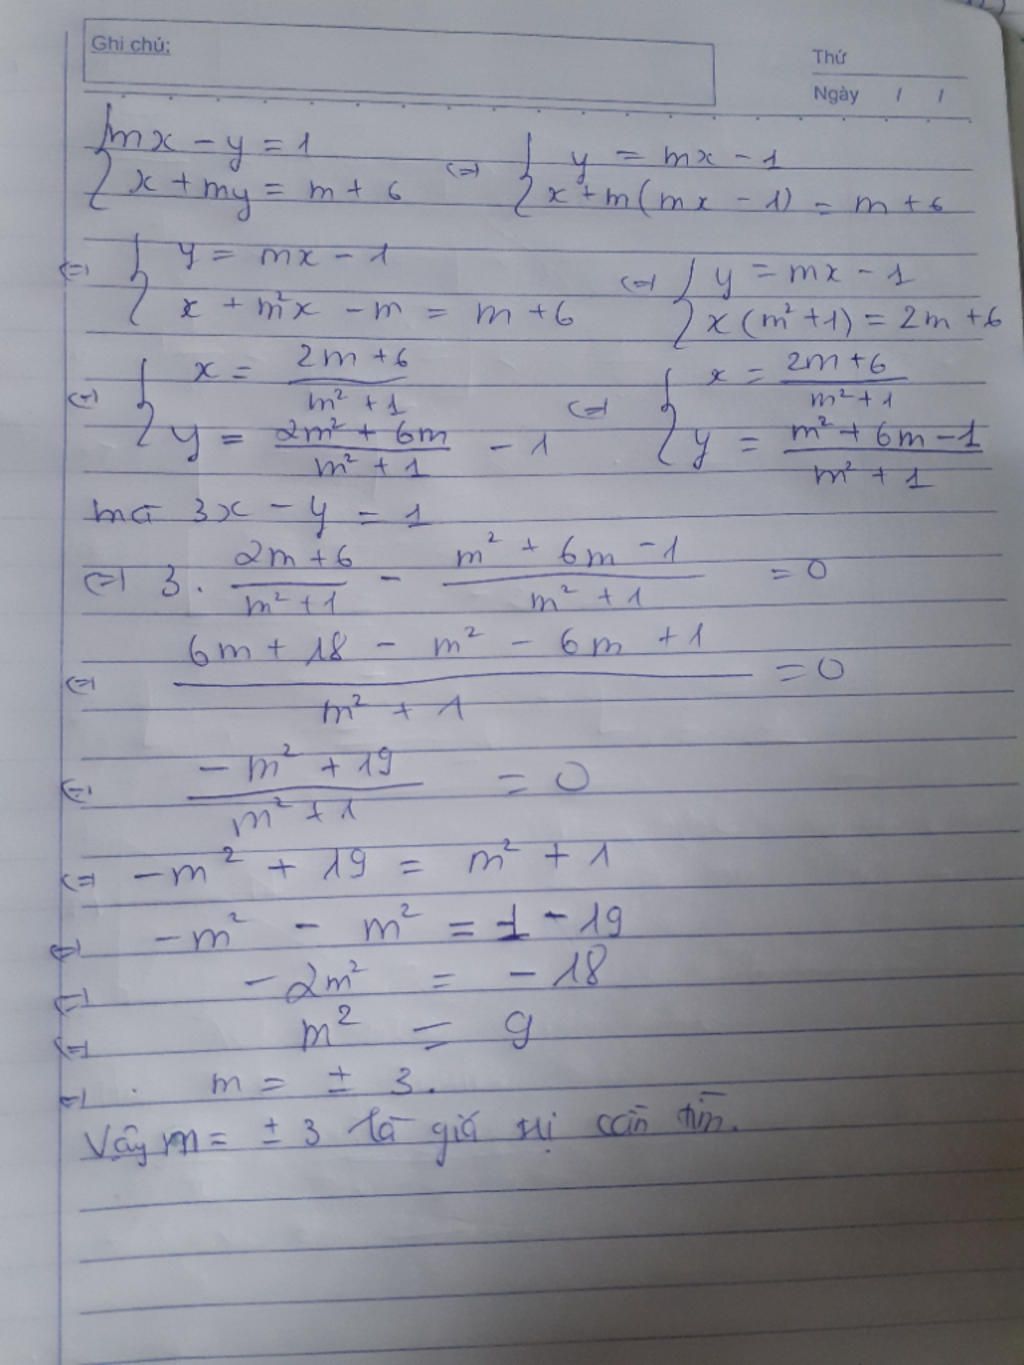 Ghi chú:
Thứ
Ngày / /
{ mx - y = 1
x + my = m + 6
<=> { y = mx - 1
x + m(mx - 1) = m + 6
<=> { y = mx - 1
x + m²x - m = m + 6
<=> { y = mx - 1
x(m² + 1) = 2m + 6
<=> { x = (2m + 6)/(m² + 1)
y = (2m² + 6m)/(m² + 1) - 1
<=> { x = (2m + 6)/(m² + 1)
y = (m² + 6m - 1)/(m² + 1)
mà 3x - y = 1
<=> 3 . (2m + 6)/(m² + 1) - (m² + 6m - 1)/(m² + 1) = 0
<=> (6m + 18 - m² - 6m + 1)/(m² + 1) = 0
<=> (-m² + 19)/(m² + 1) = 0
<=> -m² + 19 = m² + 1
<=> -m² - m² = 1 - 19
<=> -2m² = -18
<=> m² = 9
<=> m = ± 3.
Vậy m = ± 3 là giá trị cần tìm.